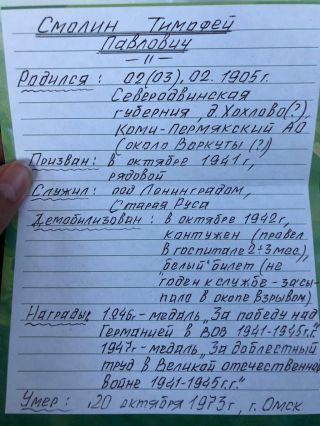 Смолин Тимофей
Павлович
— " —
Родился: 02(03), 02. 1905г.
Северодвинская
губерния, д. Хохлово(?),
Коми-Пермякский АО
(около Воркуты (?)
Призван: в октябре 1941г,
рядовой
Служил: под Ленинградом,
Старая Руса
Демобилизован: в октябре 1942г,
контужен (провел
в госпитале 2÷3 мес.),
"белый" билет (не
годен к службе - засы-
пало в окопе взрывом)
Награды: 1.946г - медаль „За победу над
Германией в ВОВ 1941-1945г.г."
1947г - медаль „За доблестный
труд в Великой отечественной
войне 1941-1945г.г."
Умер: 20 октября 1973г, г. Омск